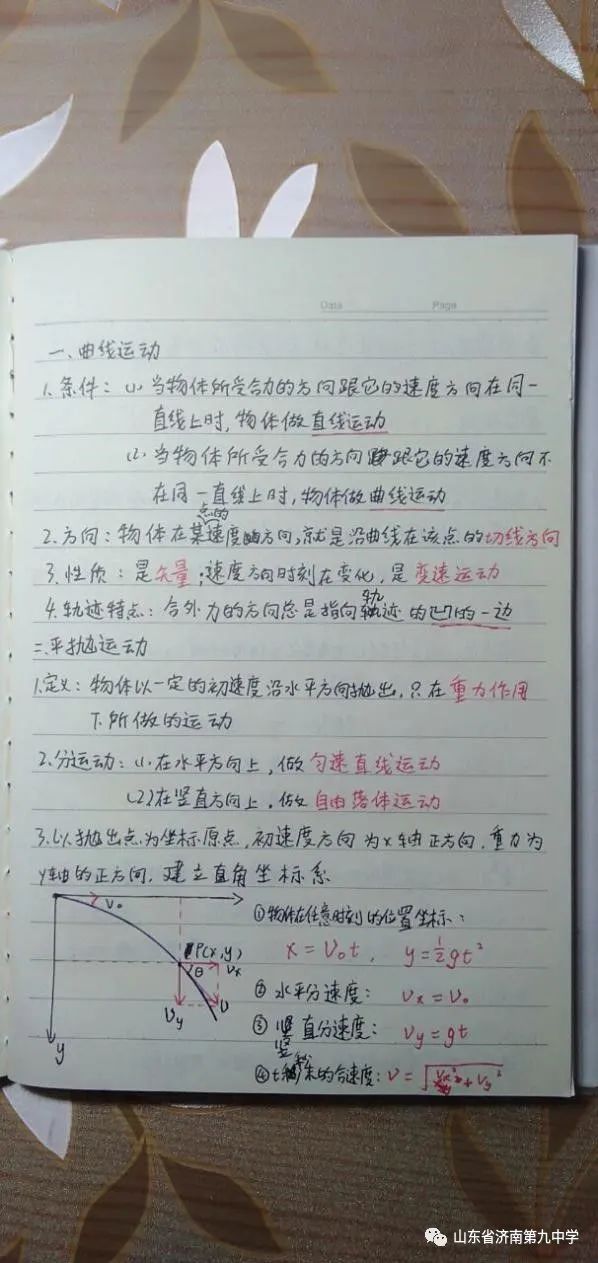 Data Page
一、曲线运动
1.条件：(1)当物体所受合力的方向跟它的速度方向在同一
直线上时，物体做直线运动
(2)当物体所受合力的方向跟它的速度方向不
在同一直线上时，物体做曲线运动
2.方向：物体在某点的速度方向，就是沿曲线在该点的切线方向
3.性质：是矢量；速度方向时刻在变化，是变速运动
4.轨迹特点：合外力的方向总是指向轨迹的凹的一边
二.平抛运动
1.定义：物体以一定的初速度沿水平方向抛出，只在重力作用
下所做的运动
2.分运动：(1)在水平方向上，做匀速直线运动
(2)在竖直方向上，做自由落体运动
3.以抛出点为坐标原点，初速度方向为x轴正方向，重力为
y轴的正方向，建立直角坐标系
v₀
P(x,y)
θ vx
vy v
y
①物体在任意时刻的位置坐标：
x=v₀t， y=½gt²
②水平分速度： vx=v₀
③竖直分速度： vy=gt
④t秒末的合速度：v=√(vx²+vy²)
山东省济南第九中学